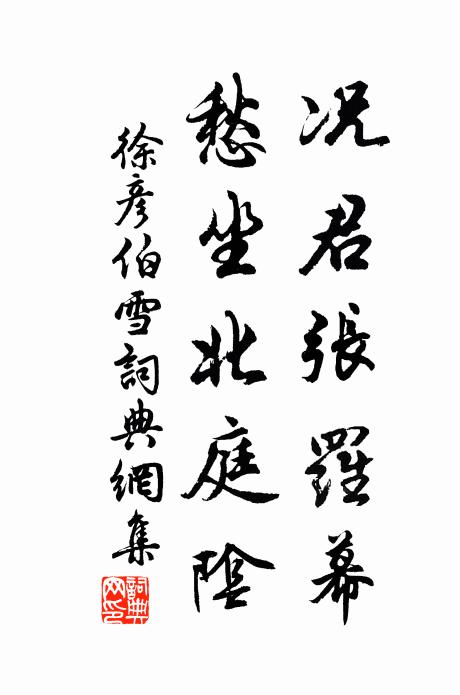 况君張羅幕
愁坐北庭陰
徐彦伯雪詞典網集
詞典網印